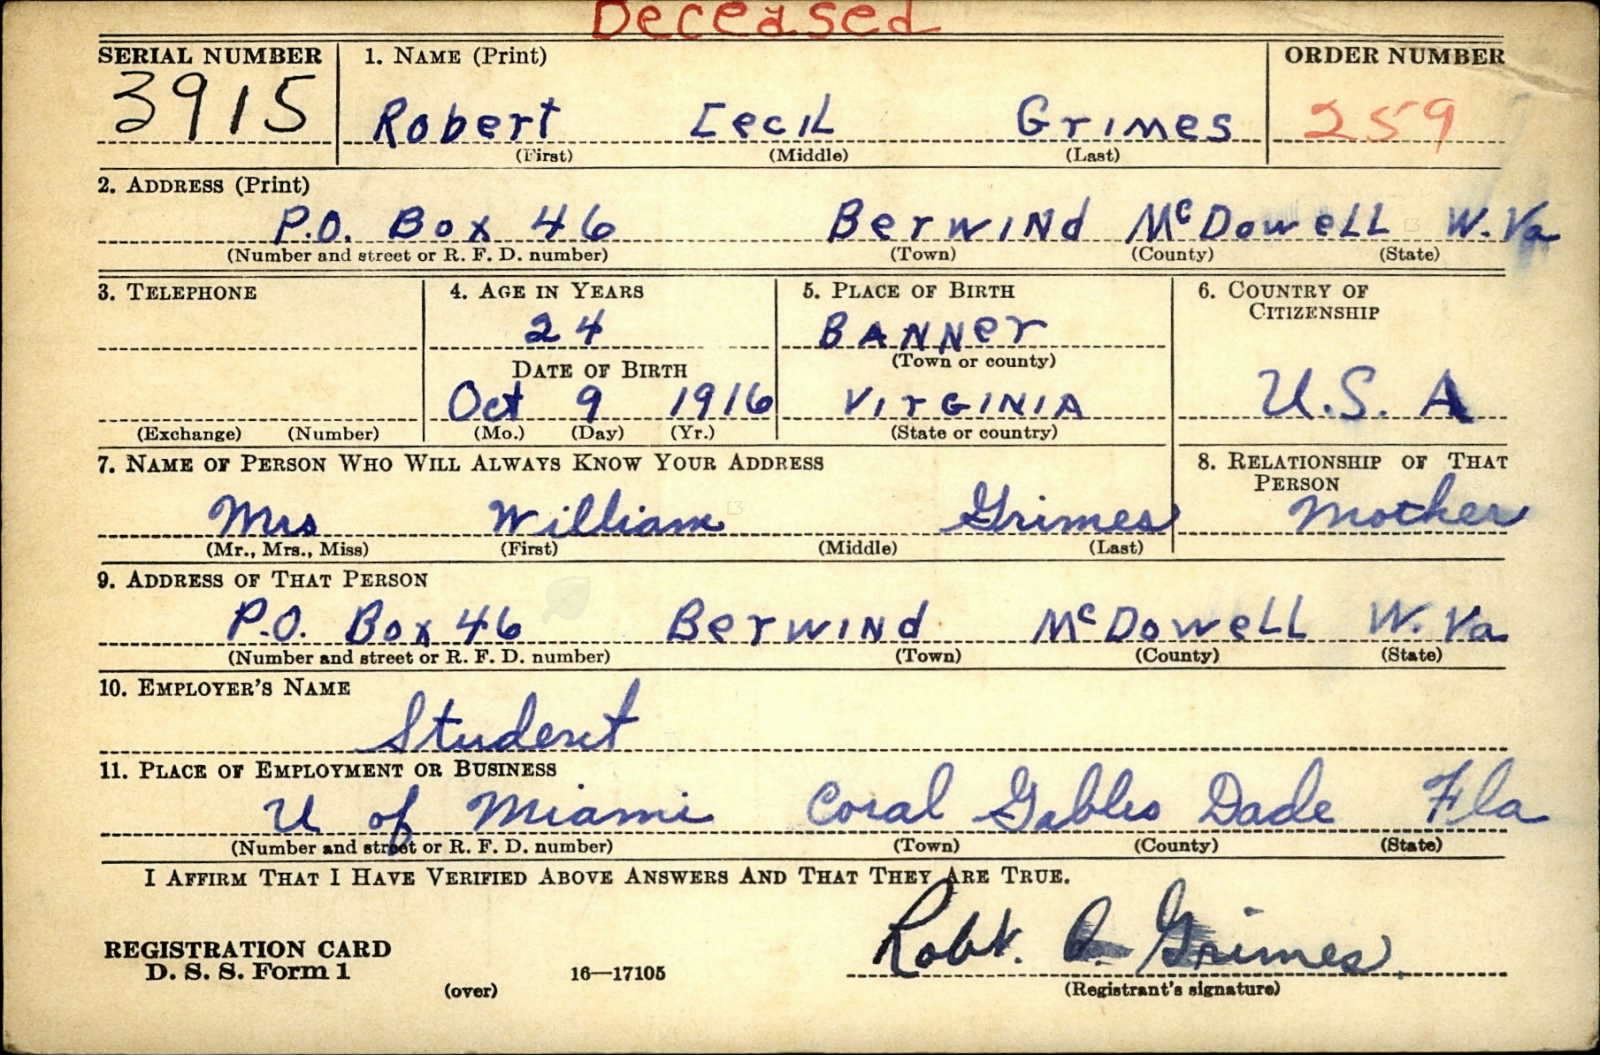 Deceased
SERIAL NUMBER 1. NAME (Print) ORDER NUMBER
3915 Robert Cecil Grimes 259
(First) (Middle) (Last)
2. ADDRESS (Print)
P.O. Box 46 Berwind McDowell W. Va
(Number and street or R. F. D. number) (Town) (County) (State)
3. TELEPHONE 4. AGE IN YEARS 5. PLACE OF BIRTH 6. COUNTRY OF CITIZENSHIP
24 Banner
DATE OF BIRTH (Town or county)
Oct 9 1916 Virginia U.S. A
(Exchange) (Number) (Mo.) (Day) (Yr.) (State or country)
7. NAME OF PERSON WHO WILL ALWAYS KNOW YOUR ADDRESS 8. RELATIONSHIP OF THAT PERSON
Mrs William Grimes Mother
(Mr., Mrs., Miss) (First) (Middle) (Last)
9. ADDRESS OF THAT PERSON
P.O. Box 46 Berwind McDowell W. Va
(Number and street or R. F. D. number) (Town) (County) (State)
10. EMPLOYER'S NAME
Student
11. PLACE OF EMPLOYMENT OR BUSINESS
U of Miami Coral Gables Dade Fla
(Number and street or R. F. D. number) (Town) (County) (State)
I AFFIRM THAT I HAVE VERIFIED ABOVE ANSWERS AND THAT THEY ARE TRUE.
Robt. C. Grimes.
REGISTRATION CARD
D. S. S. Form 1 16—17105
(over) (Registrant's signature)